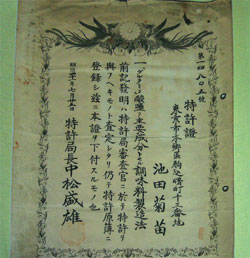 第一四八〇五號
特許證
東京市本郷區駒込曙町十三番地
池田菊苗
一「グルタミン」酸鹽ヲ主要成分トセル調味料製造法
前記發明ハ特許局審査官ニ於テ特許ヲ
與フヘキモノト査定シタリ仍テ特許原簿ニ
登録シ茲ニ本證ヲ下付スルモノ也
明治四十一年七月二十五日
特許局長中松盛雄